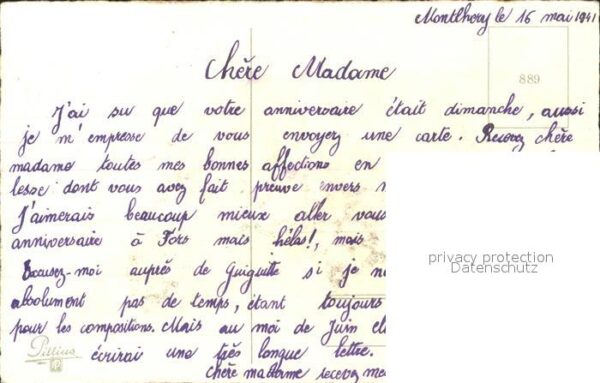 Montlhery le 16 mai 1941
889
Chère Madame
J'ai su que votre anniversaire était dimanche, aussi
je m'empresse de vous envoyez une carte. Recevez chère
madame toutes mes bonnes affections en
lesse dont vous avez fait preuve envers
J'aimerais beaucoup mieux aller vous
anniversaire à Fors mais hélas!, mais
privacy protection
Datenschutz
Excusez-moi auprès de Guiguitte si je
absolument pas de temps, étant toujours
pour les compositions. Mais au moi de Juin
écrirai une très longue lettre.
chère madame recevez